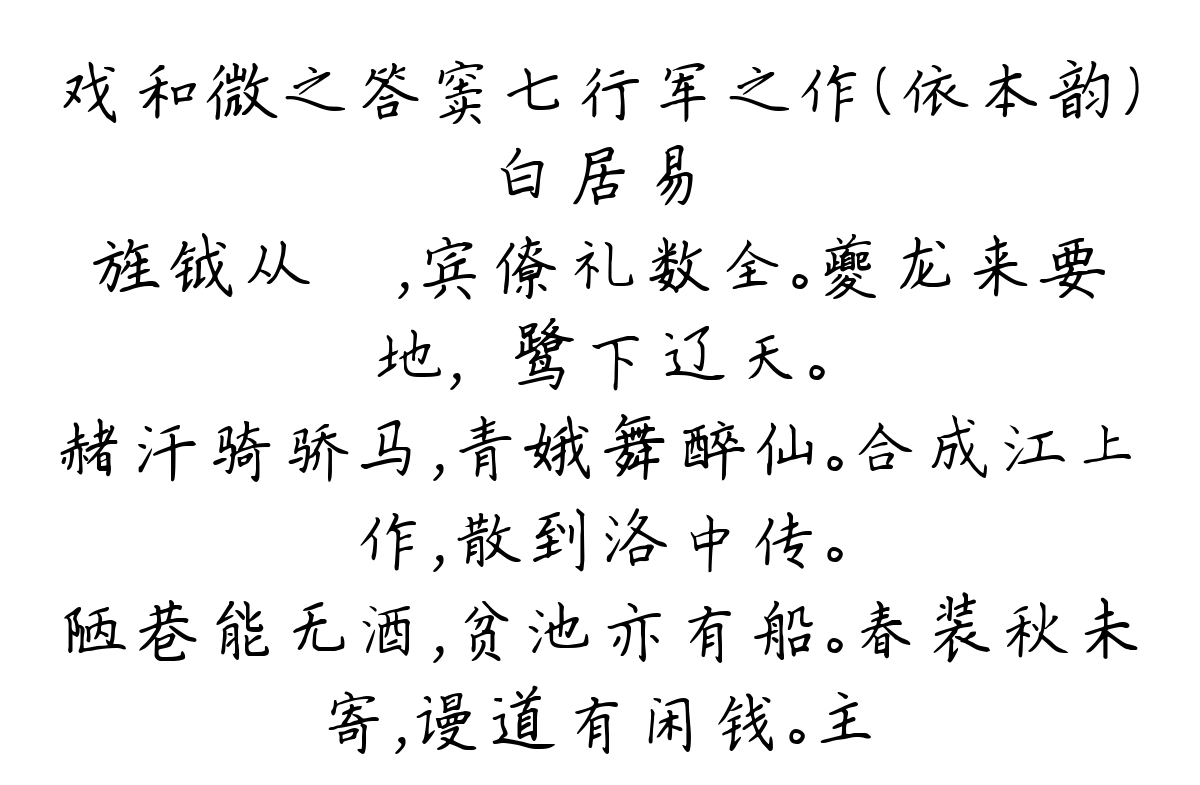 戏和微之答窦七行军之作(依本韵)
白居易
旌钺从 ,宾僚礼数全。夔龙来要
地, 鹭下辽天。
赭汗骑骄马,青娥舞醉仙。合成江上
作,散到洛中传。
陋巷能无酒,贫池亦有船。春装秋未
寄,谩道有闲钱。主